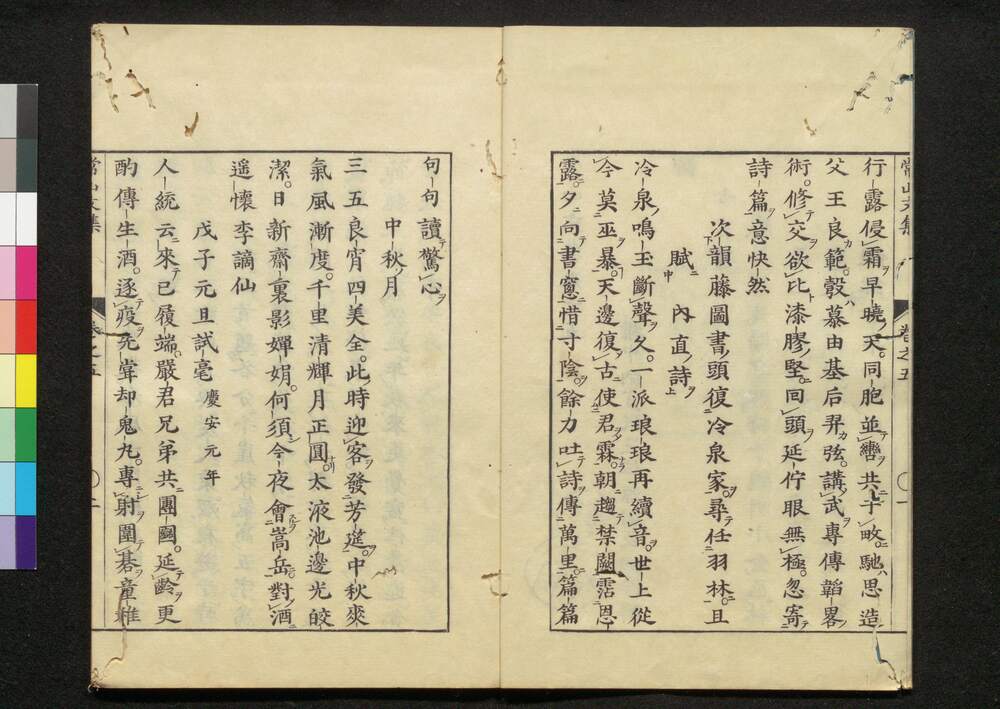 行露侵霜早曉天同胞並轡共于畋馳思造
父王良範彀慕由基后羿弦講武專傳韜畧
術修交欲比漆膠堅回頭延佇眼無極忽寄
詩篇意快然
次韻藤圖書頭復冷泉家尋任羽林且
賦内直詩
冷泉鳴玉斷聲久一派琅琅再續音世上從
今莫巫暴天邊復古使君霖朝趨禁闕霑恩
露夕向書窻惜寸陰餘力吐詩傳萬里篇篇
句句讀驚心
中秋月
三五良宵四美全此時迎客發芳筵中秋來
氣風漸度千里清輝月正圓太液池邊光皎
潔日新齋裏影嬋娟何須今夜會嵩岳對酒
遥懷李謫仙
戊子元旦試毫 慶安元年
人統云來已履端嚴君兄弟共團圞延齡更
酌傳生酒逐疫先掌却鬼丸專射圍碁童稚
常山文集 卷之五